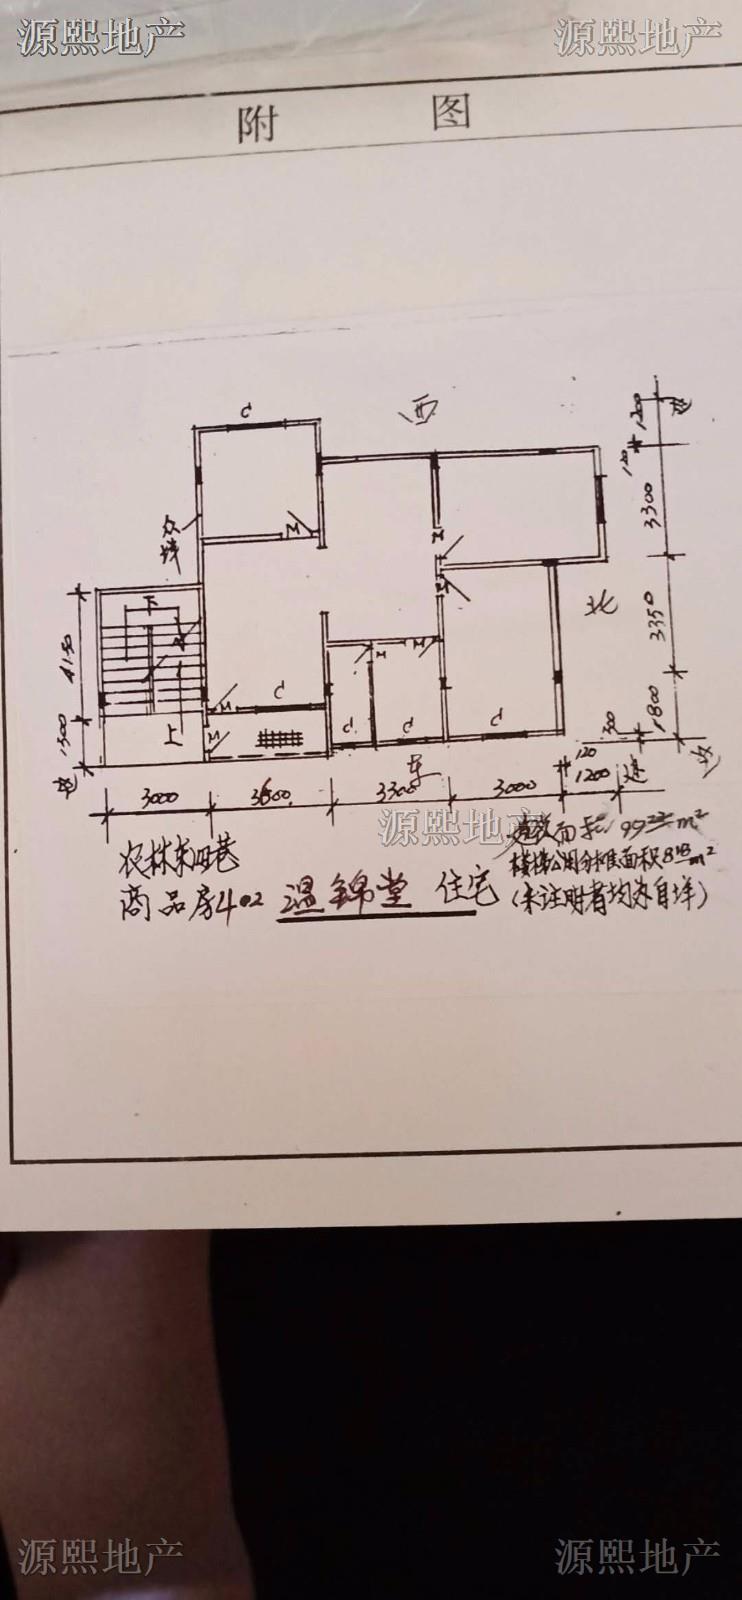 源熙地产 源熙地产
附 图
西
c
M
公墙
1200
120
3300
北
3350
1800
300
4150
1500
下
上
M
M
M
M
M
c
c
c
c
东
120
3000 3600 3300 3000 1200
源熙地产
建筑面积 99.22 m²
楼梯公用分摊面积8.43m²
(未注明者均为自墙)
农林东四巷
商品房402 温锦堂 住宅
源熙地产 源熙地产